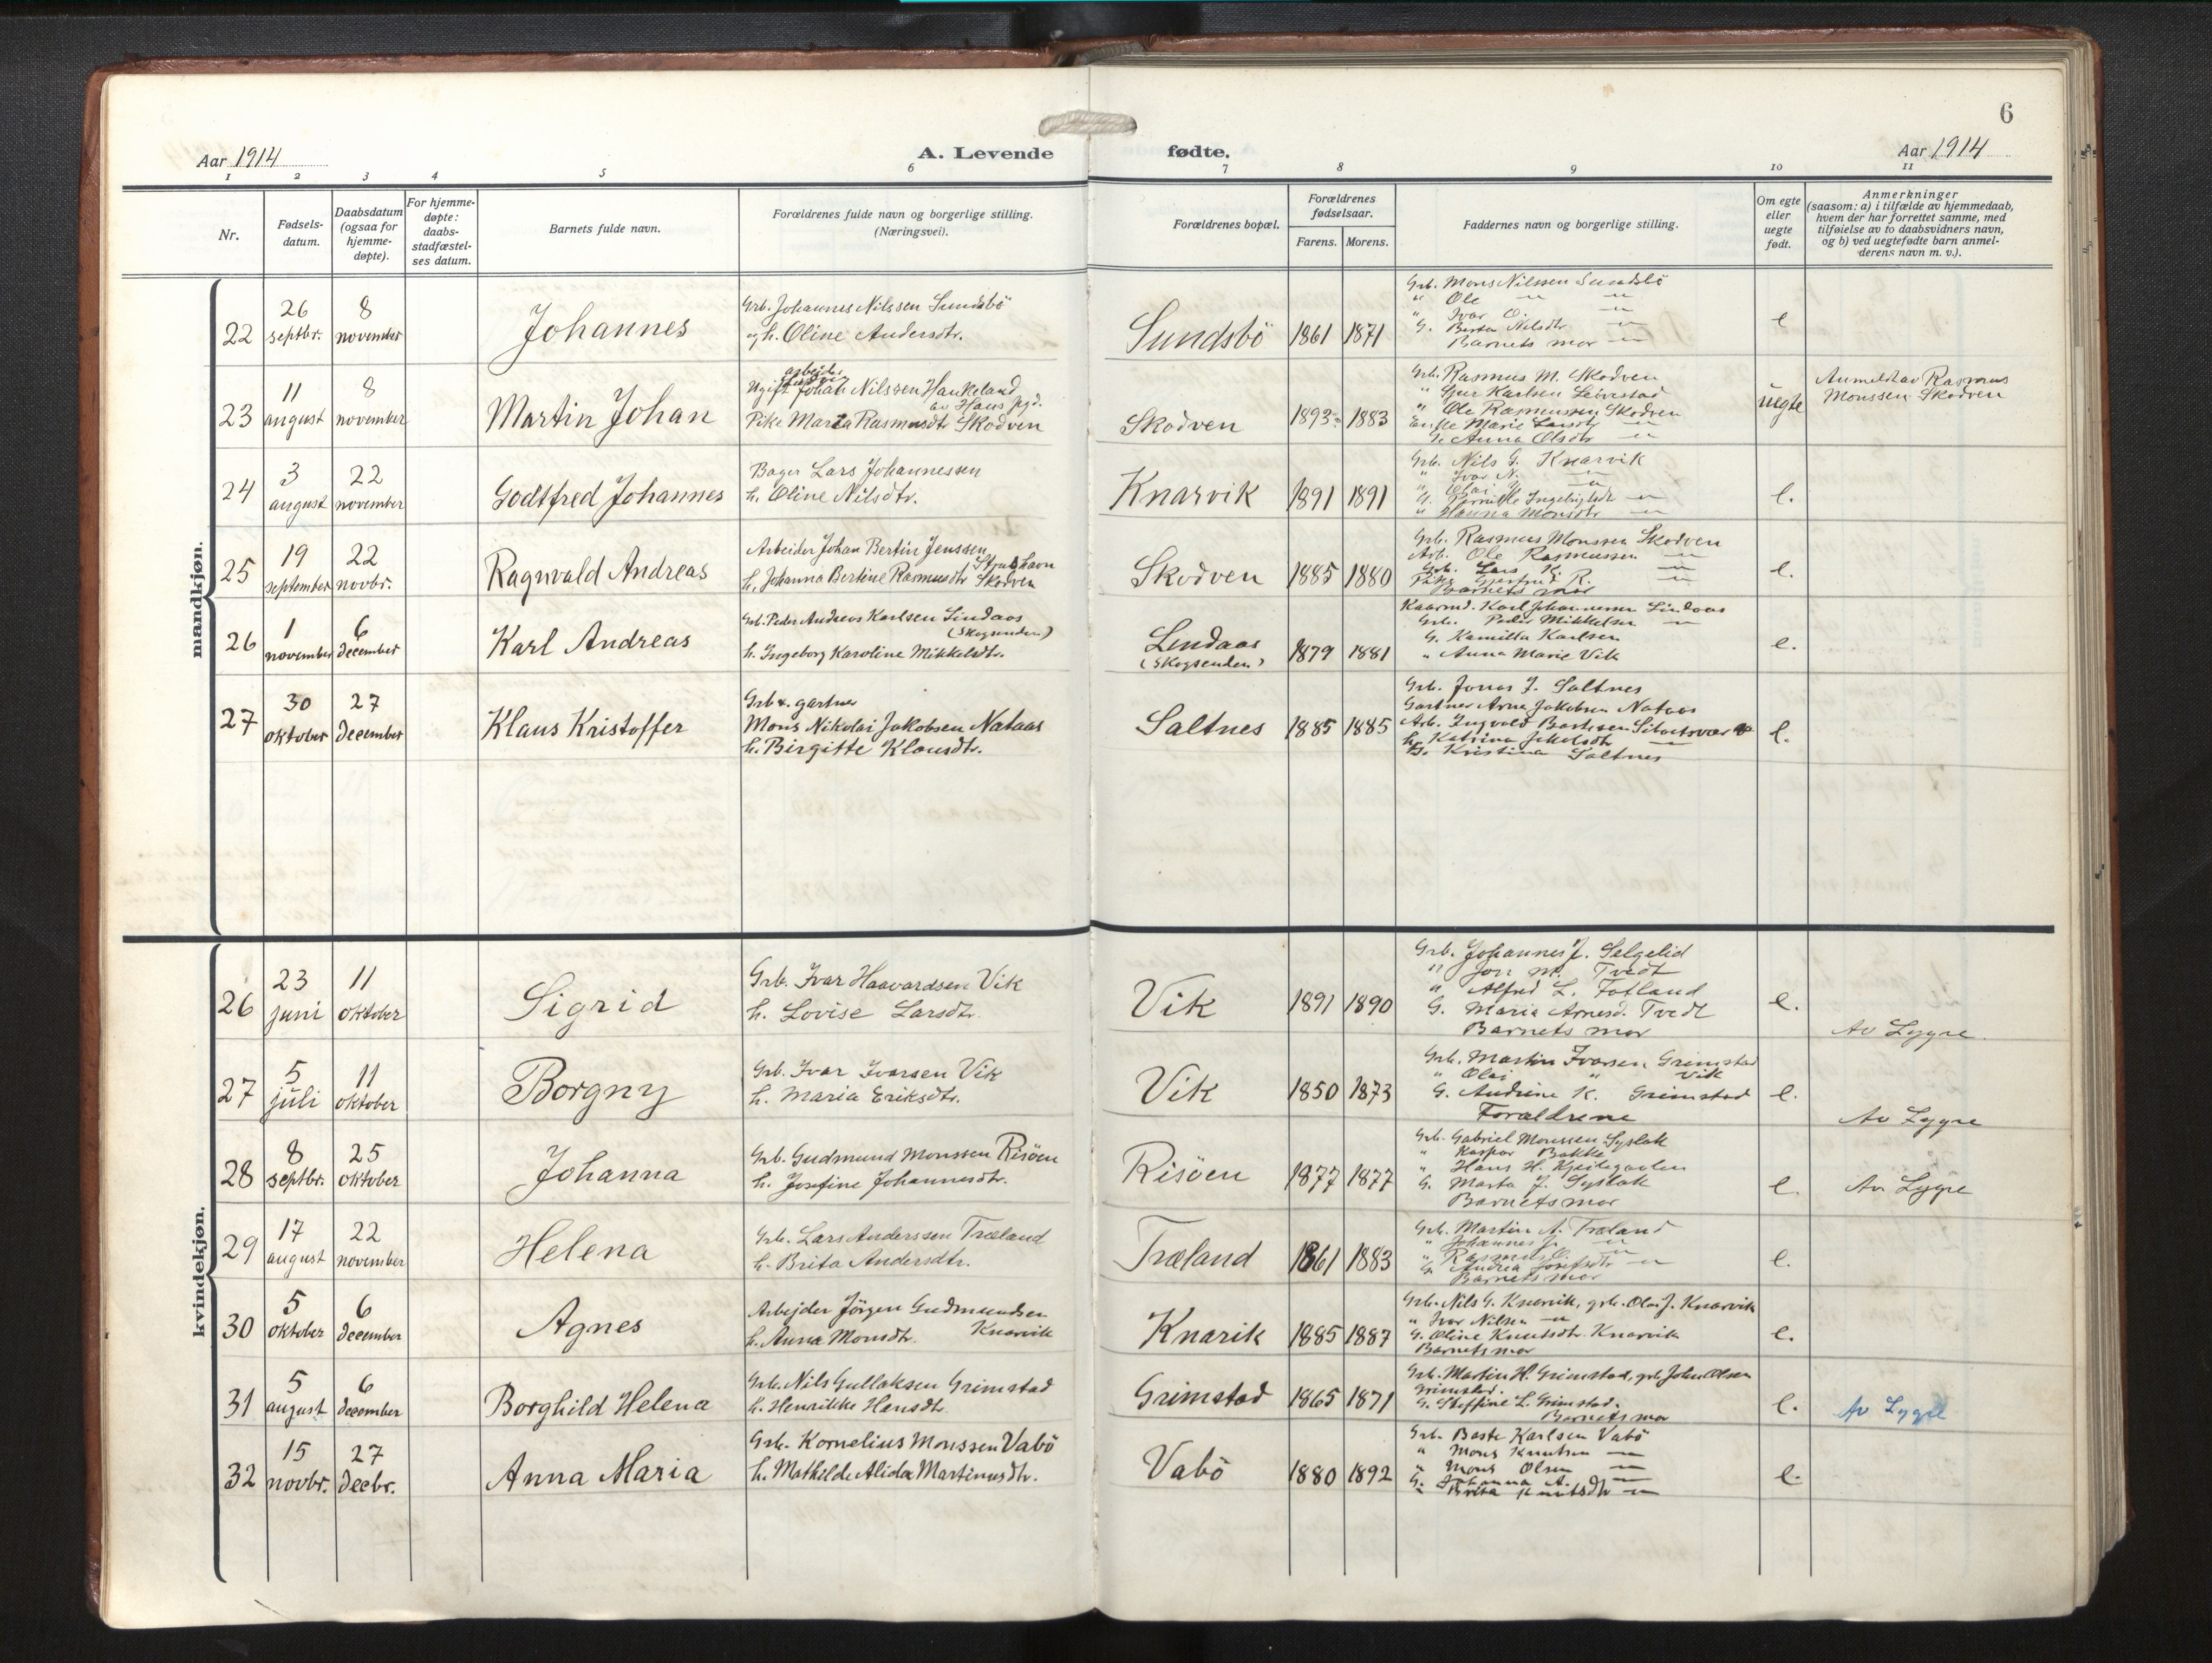 6
Aar 1914
A. Levende fødte.
Aar 1914
1 2 3 4 5 6 7 8 9 10 11
Nr.
Fødsels-
datum.
Daabsdatum
(ogsaa for
hjemme-
døpte).
For hjemme-
døpte:
daabs-
stadfæstel-
ses datum.
Barnets fulde navn.
Forældrenes fulde navn og borgerlige stilling.
(Næringsvei).
Forældrenes bopæl.
Forældrenes
fødselsaar.
Farens. Morens.
Faddernes navn og borgerlige stilling.
Om egte
eller
uegte
født.
Anmerkninger
(saasom: a) i tilfælde av hjemmedaab,
hvem der har forrettet samme, med
tilføielse av to daabsvidners navn,
og b) ved uegtefødte barn anmel-
derens navn m. v.).
mandkjøn.
22
26
septbr.
8
november
Johannes
Grb. Johannes Nilssen Sundsbö
og h. Oline Andersdtr.
Sundsbö
1861 1871
Grb. Mons Nilssen Sundsbö
" Ole — —
" Ivar O. —
G. Berta Nilsdtr —
Barnets mor —
e
23
11
august
8
november
Martin Johan
arbeider
Ugift Johan Nilssen Haukeland
av Haus pgd.
Pike Maria Rasmusdtr Skodven
Skodven
1893 1883
Grb. Rasmus M. Skodven
" Gjur Karlsen Leivestad
" Ole Rasmussen Skodven
Enke Marie Larsdtr —
G. Anna Olsdtr —
uegte
Anmeldt av Rasmus
Monssen Skodven
24
3
august
22
november
Godtfred Johannes
Bager Lars Johannessen
h. Oline Nilsdtr.
Knarvik
1891 1891
Grb. Nils G. Knarvik
" Ivar N. —
" Olai J. —
G. Pernille Ingebrigtsdtr —
" Hanna Monsdtr —
e.
25
19
september
22
novbr.
Ragnvald Andreas
Arbeider Johan Bertin Jenssen
Strusshavn
h. Johanna Bertine Rasmusdtr Skodven
Skodven
1885 1880
Grb. Rasmus Monssen Skodven
Arb. Ole Rasmussen —
Grb. Lars K. —
Pike Gjertrud R. —
Barnets mor
e.
26
1
november
6
december
Karl Andreas
Grb. Peder Andreas Karlsen Lindaas
(Skogsenden)
h. Ingeborg Karoline Mikkelsdtr.
Lindaas
(Skogsenden)
1879 1881
Kaarmd. Karl Johannessen Lindaas
Grb. Peder Mikkelsen —
G. Kamilla Karlsen
" Anna Marie Vik
e.
27
30
oktober
27
december
Klaus Kristoffer
Grb & gartner
Mons Nikolai Jakobsen Nataas
h. Birgitte Klausdtr.
Saltnes
1885 1885
Grb. Jonas J. Saltnes
Gartner Arne Jakobsen Nataas
Arb. Ingvald Bertsen
h. Katrina Jakobsdtr —
G. Kristina Saltnes
e.
kvindekjøn.
26
23
juni
11
oktober
Sigrid
Grb. Ivar Haavardsen Vik
h. Lovise Larsdtr.
Vik
1891 1890
Grb. Johannes J. Selgelid
" Jon M. Tvedt
" Alfred L. Fotland
G. Maria Arnesd. Tvedt
Barnets mor
e.
Av Lygre.
27
5
juli
11
oktober
Borgny
Grb. Ivar Ivarsen Vik
h. Maria Eriksdtr.
Vik
1850 1873
Grb. Martin Ivarsen Grimstad
" Olai " Vik
G. Andrine K. Grimstad
Forældrene
e.
Av Lygre
28
8
septbr.
25
oktober
Johanna
Grb. Gudmund Monssen Risöen
h. Josefine Johannesdtr.
Risöen
1877 1877
Grb. Gabriel Monssen Syslak
" Kaspar Bakke
" Hans H. Kjeilegavlen
G. Marta J. Syslak
Barnets mor
e.
Av Lygre
29
17
august
22
november
Helena
Grb. Lars Anderssen Træland
h. Brita Andersdtr.
Træland
1861 1883
Grb. Martin A. Træland
" Johannes J. —
" Rasmus O. —
G. Andrea Josefsdtr —
Barnets mor
e.
30
5
oktober
6
december
Agnes
Arbejder Jörgen Gudmundsen
h. Anna Monsdtr. Knarvik
Knarik
1885 1887
Grb. Nils G. Knarvik, grb. Olai J. Knarvik
" Ivar Nilsen —
G. Oline Knutsdtr. Knarvik
Barnets mor
e.
31
5
august
6
december
Borghild Helena
Grb. Nils Gullaksen Grimstad
h. Henrikke Hansdtr.
Grimstad
1865 1871
Grb. Martin H. Grimstad, grb John Olsen
Grimstad.
G. Steffine L. Grimstad.
Barnets mor
e.
Av Lygre
32
15
novbr.
27
decbr.
Anna Maria
Grb. Kornelius Monssen Vabö
h. Mathilde Alida Martinusdtr.
Vabö
1880 1892
Grb. Baste Karlsen Vabö
" Mons Knutsen —
" Mons Olsen —
G. Johanna A. —
" Brita Knutsdtr —
e.